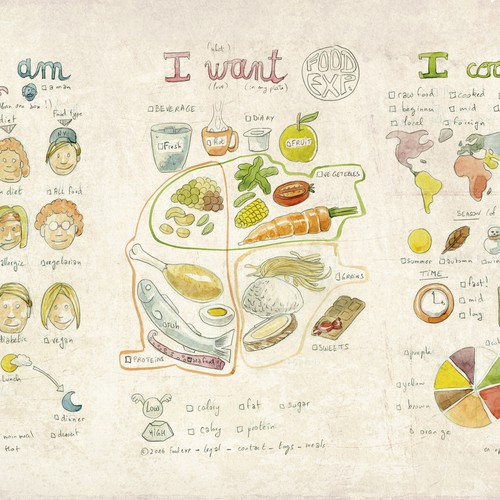 am
I want
(what)
(love)
(in my plate)
FOOD
EXP.
I coo
a man
diet
Food type
diet
ALL Food
allergic
vegetarian
diabetic
vegan
lunch
dinner
normal meal
dessert
BEVERAGE
Fresh
Hot
DIARY
FRUIT
VEGETABLES
GRAINS
FISH
PROTEINS
SWEETS
LOW
calory
fat
sugar
HIGH
calory
protein
legal - contact - tags - meals
raw food
cooked
beginner
mid
local
foreign
SEASON
summer
autumn
TIME
fast!
mid
long
purple
yellow
brown
orange